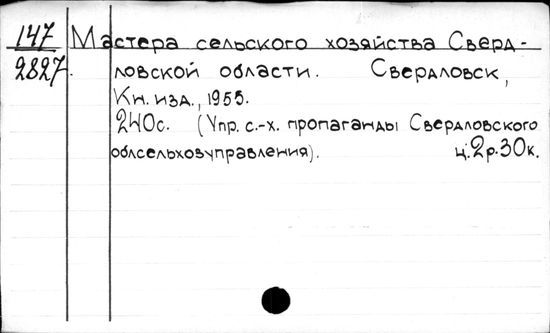 147 Мастера сельского хозяйства Сверд-
2827. ловской области. Свердловск,
Кн. изд., 1955.
240с. (Упр. с.-х. пропаганды Свердловского
облсельхозуправления). ц. 2р. 30к.